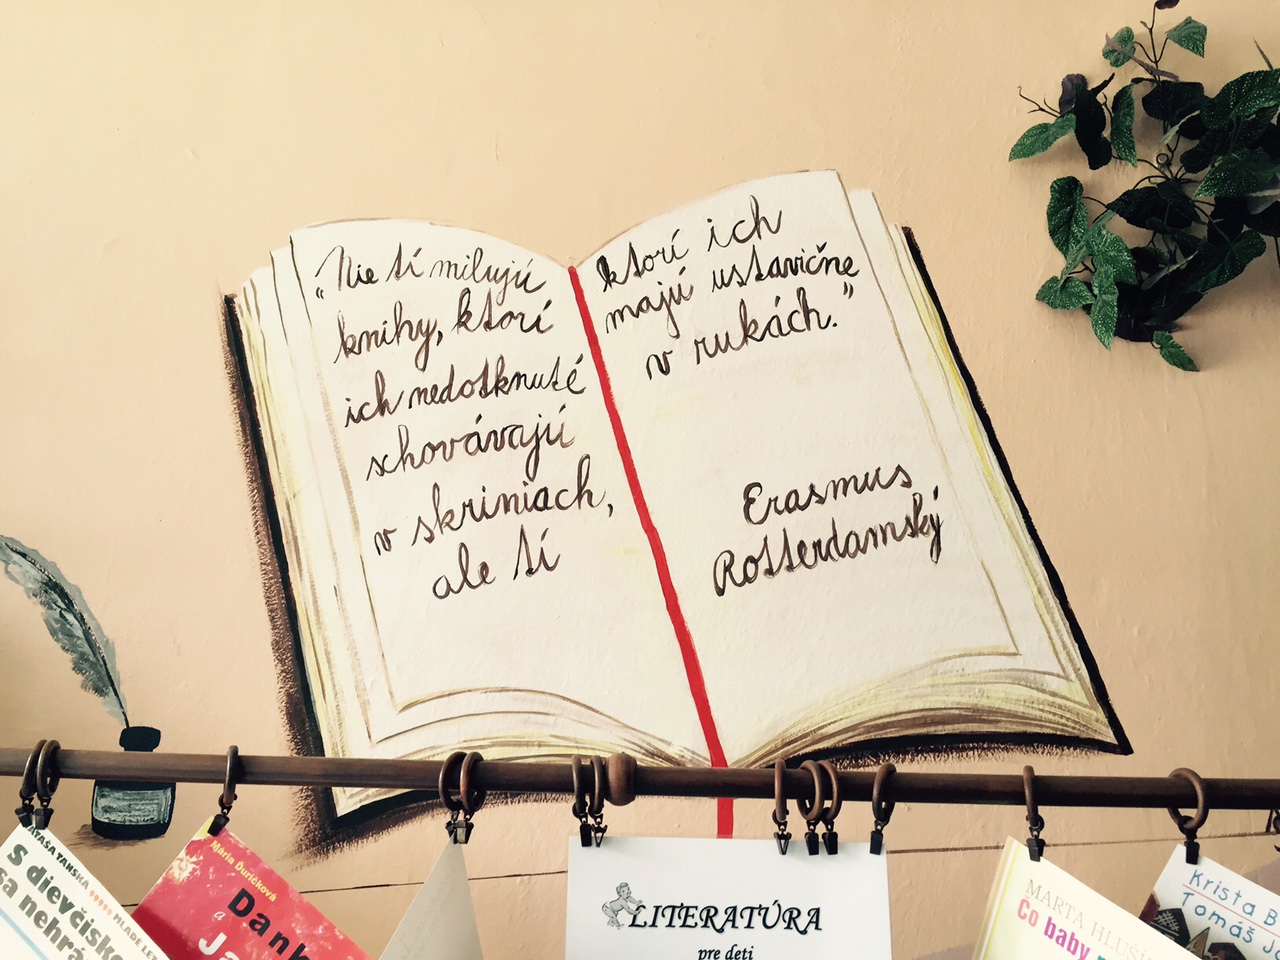 „Nie tí milujú
knihy, ktorí
ich nedotknuté
schovávajú
v skriniach,
ale tí
ktorí ich
majú ustavične
v rukách.”
Erasmus
Rotterdamský
NATAŠA TANSKÁ
MLADÉ LET
S dievčisko
sa nehrá
Mária Ďuríčková
Dank
a
Ja
LITERATÚRA
pre deti
MARTA HLUŠÍ
Čo baby
Krista B
Tomáš Ja